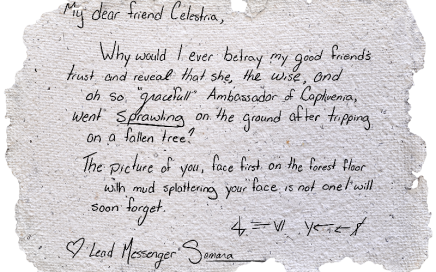 My dear friend Celestria,
Why would I ever betray my good friend's
trust and reveal that she, the wise, and
oh so "gracefull" Ambassador of
went Sprawling on the ground after tripping
on a fallen tree?
The picture of you, face first on the forest floor
with mud splattering your face is not one I will
soon forget.
♡ Lead Messenger Samara